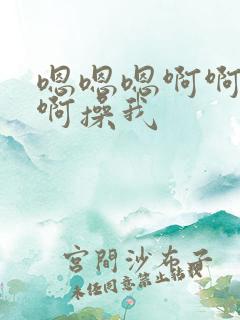 嗯嗯嗯啊啊
啊操我
宮間沙布子
未经同意禁止转载